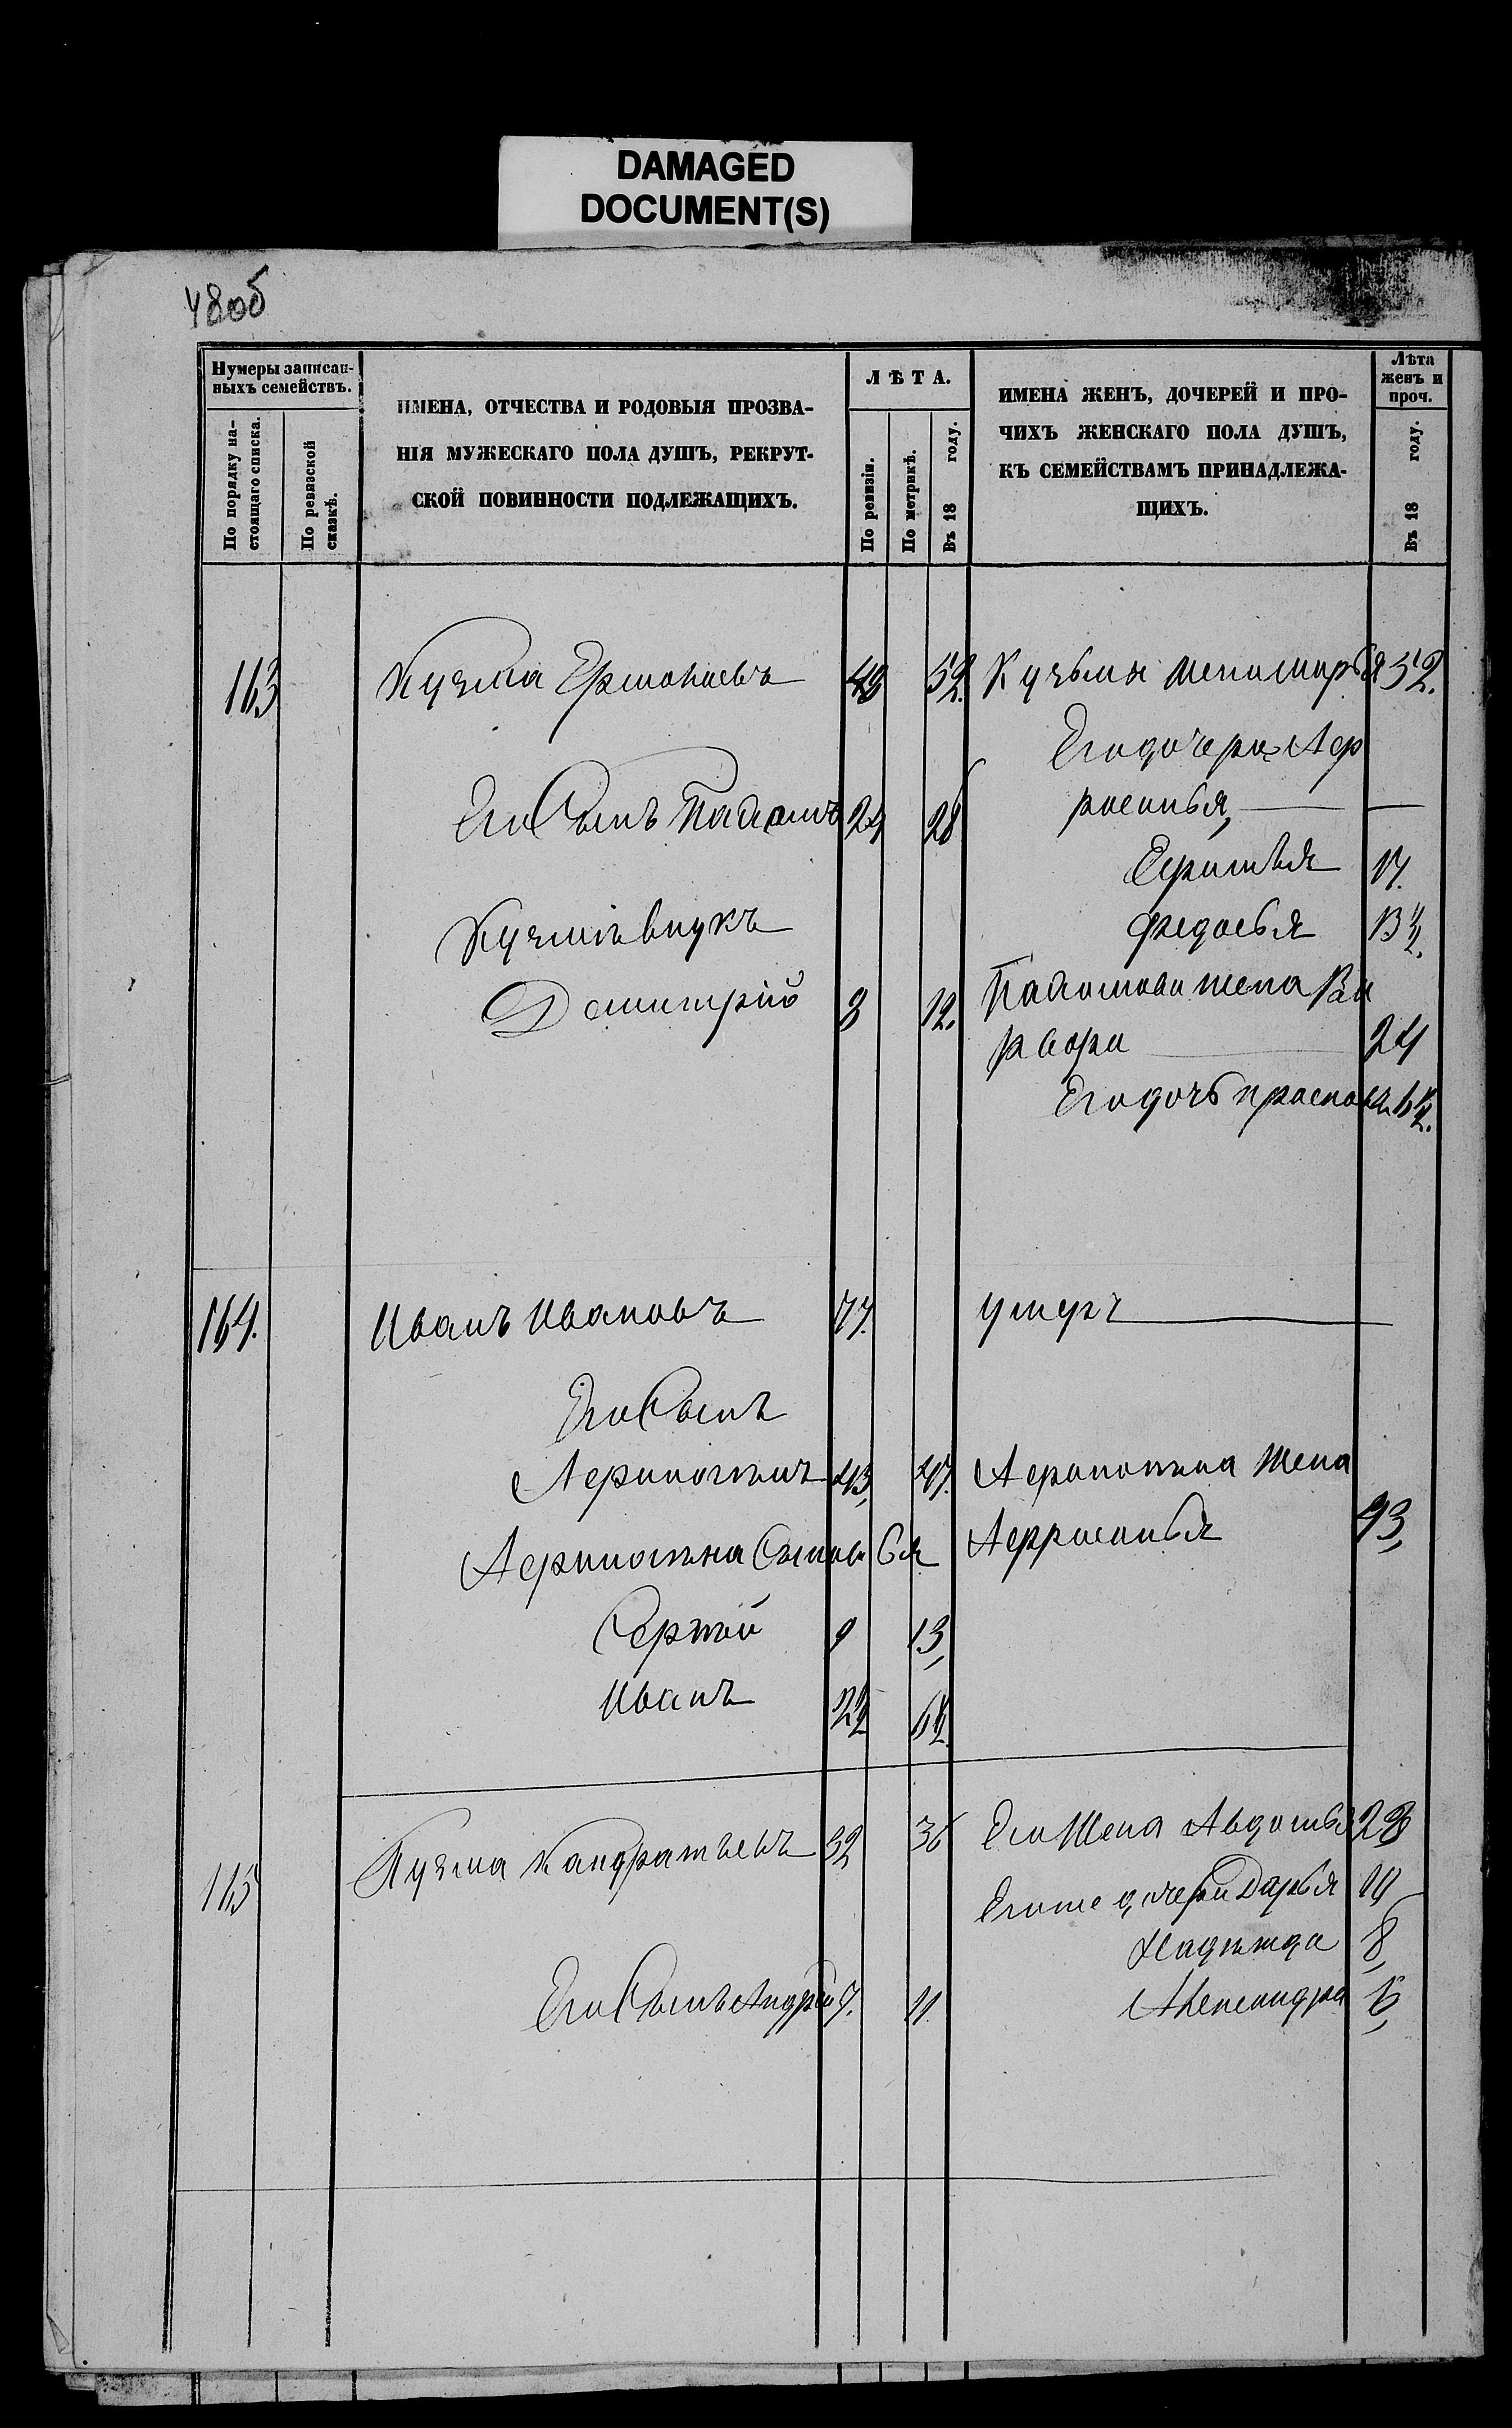 DAMAGED
DOCUMENT(S)
48об
Нумеры записан-
ныхъ семействъ.
По порядку на-
стоящаго списка.
По ревизской
сказкѣ.
ИМЕНА, ОТЧЕСТВА И РОДОВЫЯ ПРОЗВА-
НІЯ МУЖЕСКАГО ПОЛА ДУШЪ, РЕКРУТ-
СКОЙ ПОВИННОСТИ ПОДЛЕЖАЩИХЪ.
ЛѢТА.
По ревизіи.
По метрикѣ.
Въ 18 году.
ИМЕНА ЖЕНЪ, ДОЧЕРЕЙ И ПРО-
ЧИХЪ ЖЕНСКАГО ПОЛА ДУШЪ,
КЪ СЕМЕЙСТВАМЪ ПРИНАДЛЕЖА-
ЩИХЪ.
Лѣта
женъ и
проч.
Въ 18 году.
163 Кузма 52. Кузьмы жена Марья 52.
Его дочери Аф
росинья,
Его Сынъ 24 28
17.
Федосья 13½.
Кузмы внукъ
Демитрій 8 12. жена Ва
рвара 24
Его дочь 
164. Иванъ Ивановъ 77. умеръ
Его Сынъ
43, 47. жена
43,
Сыновья
Сергѣй 9 13,
Иванъ 2½ 6½
165 Кузма Кандратьевъ 32 36 Его Жена Авдотья 28
Егоже дочери Дарья
Надежда 8,
Его Сынъ Андрей 7. 11. Александра 6,